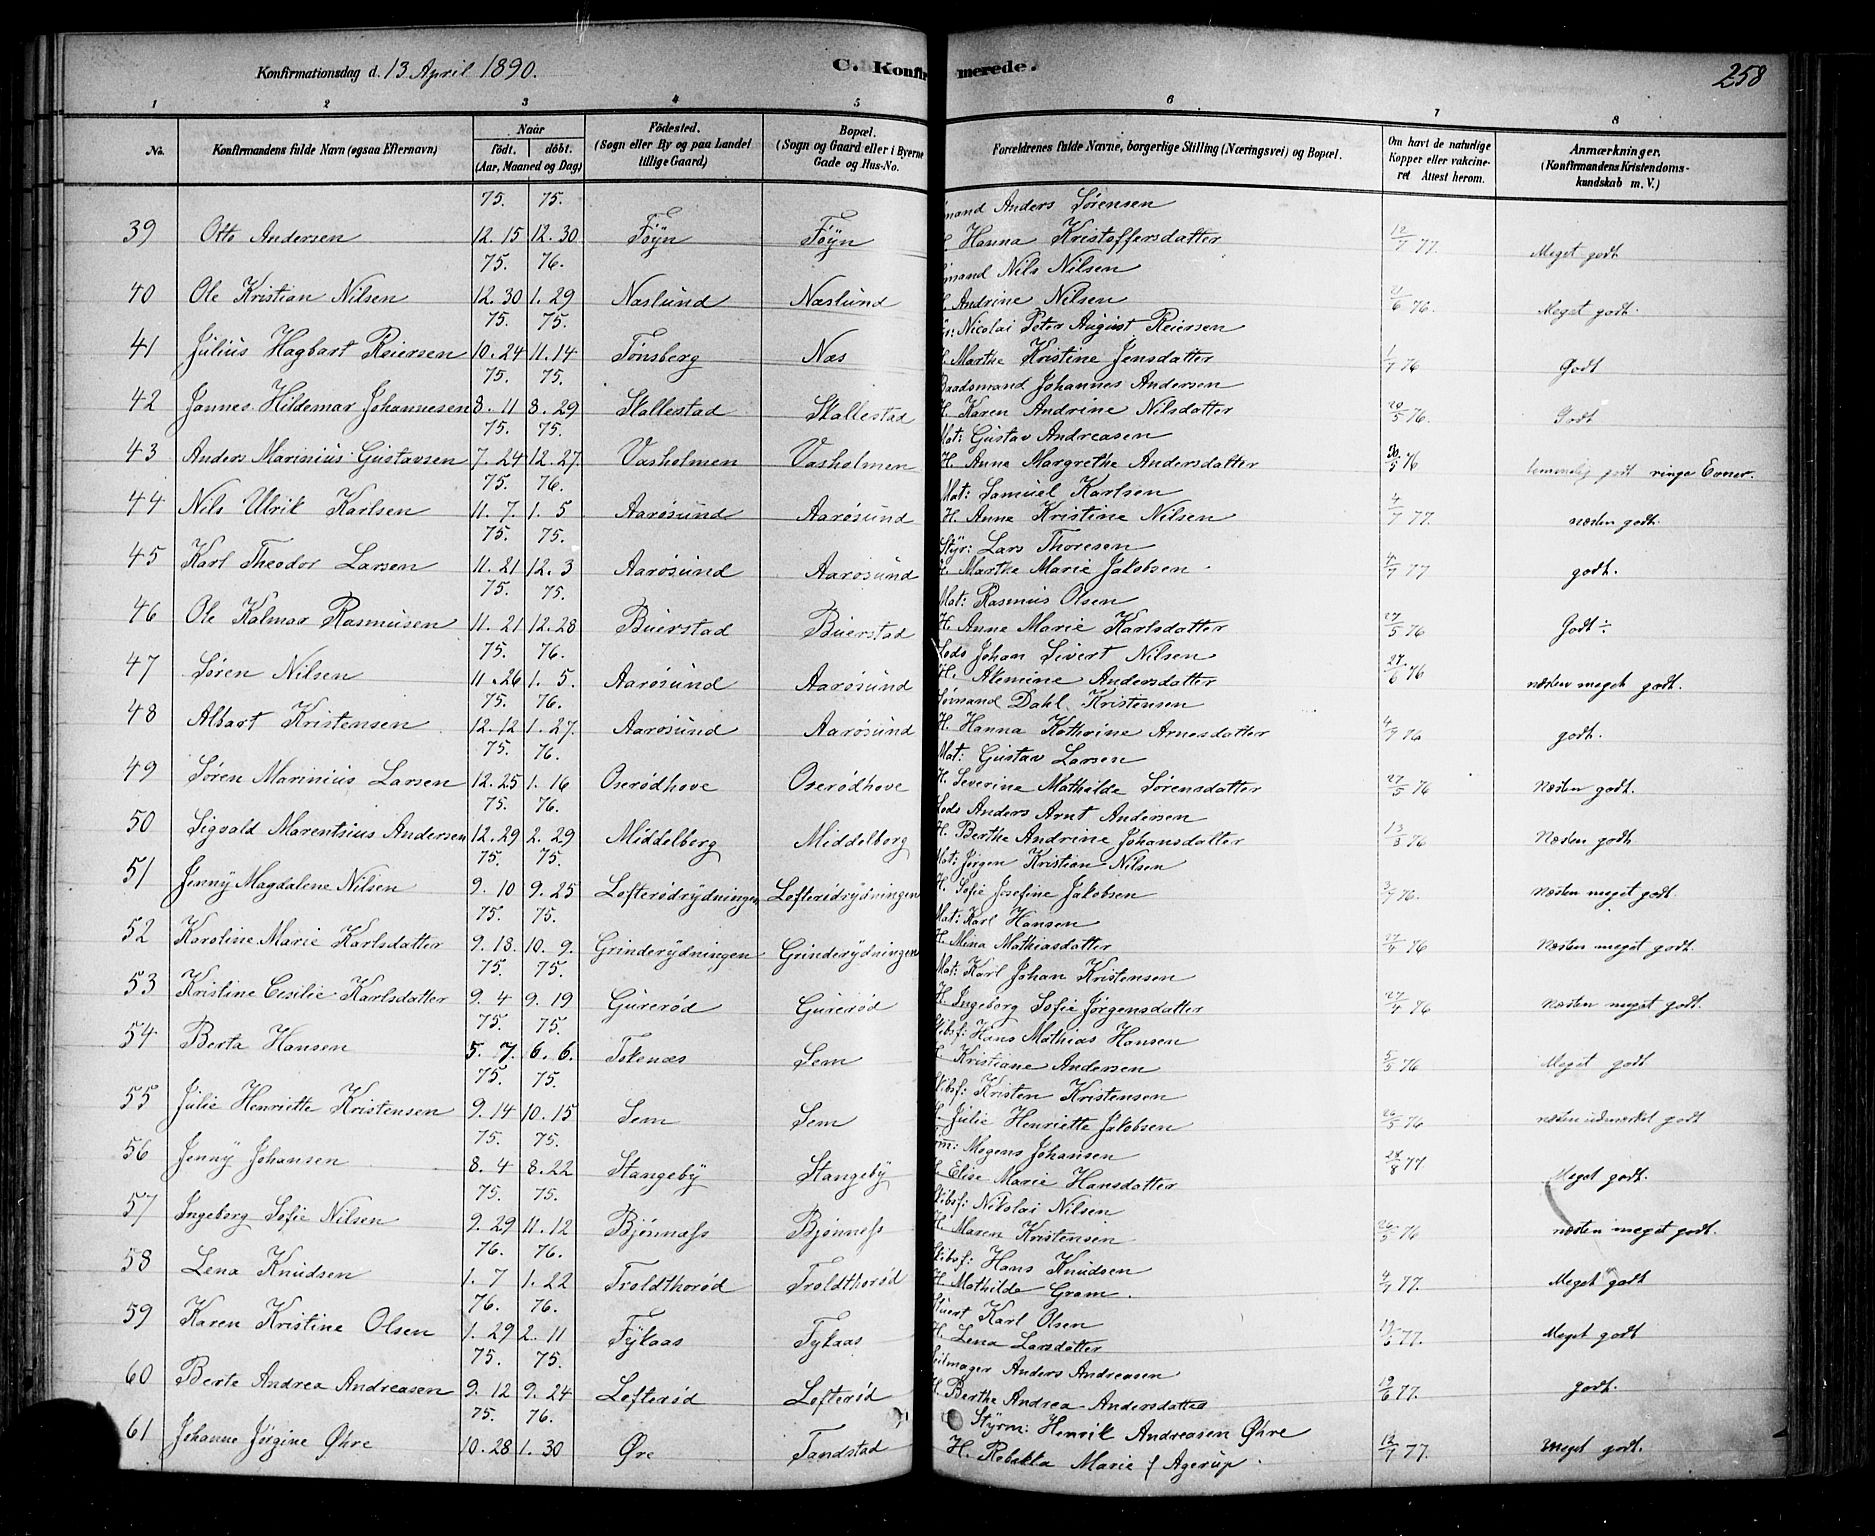 Konfirmationsdag d. 13 April 1890.
C. Konfirmerede.
258
1 2 3 4 5 6 7 8
No.
Konfirmandens fulde Navn (ogsaa Efternavn)
Naar
födt. döbt.
(Aar, Maaned og Dag)
Födested.
(Sogn eller By og paa Landet
tillige Gaard)
Bopæl.
(Sogn og Gaard eller i Byerne
Gade og Hus-No.
Forældrenes fulde Navne, borgerlige Stilling (Næringsvei) og Bopæl.
Om havt de naturlige
Kopper eller vakcine-
ret Attest herom.
Anmærkninger.
(Konfirmandens Kristendoms-
kundskab m. V.)
75. 75. Anders Sørensen
39 Otto Andersen 12. 15 12. 30 Föyn Föyn H. Hanna Kristoffersdatter 12/7 77. Meget godt
75. 76. Nils Nilsen
40 Ole Kristian Nilsen 12. 30 1. 29 Næslund Næslund H. Andrine Nilsen 2/6 76. Meget godt.
75. 75. Nicolai Peter August Reiersen
41 Julius Hagbart Reiersen 10. 24 11. 14 Tønsberg Næs H. Marthe Kristine Jensdatter 1/7 76 Godt
75. 75. Baadsmand Johannes Andersen
42 Jannes Hildemar Johannesen 8. 11 8. 29 Skallestad Skallestad H. Karen Andrine Nilsdatter 20/5 76. Godt
75. 75. Mat: Gustav Andreasen
43 Anders Marinius Gustavsen 7. 24 12. 27. Vasholmen Vasholmen H. Anne Margrethe Andersdatter 20/5 76 temmelig godt ringe Evner.
75. 76. Mat: Samuel Karlsen
44 Nils Ulrik Karlsen 11. 7. 1. 5 Aarøsund Aarøsund H. Anne Kristine Nilsen 4/7 77. næsten godt.
75. 75. Styr: Lars Thoresen
45 Karl Theodor Larsen 11. 21 12. 3 Aarøsund Aarøsund H. Marthe Marie Jakobsen. 4/7 77 godt.
75. 75. Mat: Rasmus Olsen
46 Ole Kalmar Rasmusen 11. 21 12. 28 Buerstad Buerstad H. Anne Marie Karlsdatter 27/5 76 Godt ÷
75. 76. Lods Johan Sivert Nilsen
47 Søren Nilsen 11. 26 1. 5. Aarøsund Aarøsund H. Alemine Andersdatter 27/6 76 næsten meget godt.
75. 76. Sømand Dahl. Kristensen
48 Albart Kristensen 12. 12 1. 27. Aarøsund Aarøsund H. Hanna Kathrine Arnesdatter 4/9 76 godt.
75. 76. Mat: Gustav Larsen
49 Søren Marinius Larsen 12. 25 1. 16 Oserødhove Oserødhove H. Severine Mathilde Sørensdatter 27/5 76 Næsten godt.
75. 76. Lods Anders Arnt Andersen
50 Sigvald Marentsius Andersen 12. 29 2. 29 Middelborg Middelborg H. Berthe Andrine Johansdatter 13/3 76 Næsten godt
75. 75. Mat: Jørgen Kristian Nilsen
51 Jenny Magdalene Nilsen 9. 10 9. 25 Lofterødrydningen Lofterødrydningen H. Sofie Josefine Jakobsen 3/9 76. Næsten meget godt.
75. 75. Mat: Karl Hansen
52 Karoline Marie Karlsdatter 9. 18. 10. 9. Grinderydningen Grinderydningen H. Mina Mathiasdatter 27/4 76 Næsten meget godt.
75. 75. Mat: Karl Johan Kristensen
53 Kristine Cesilie Karlsdatter 9. 4 9. 19 Gurerød Gurerød H. Ingeborg Sofie Jørgensdatter 27/4 76 Næsten meget godt.
75. 75. Skibsf: Hans Mathias Hansen
54 Berta Hansen 5. 7. 6. 6. Tokenæs Sem H. Kristiane Andersen 5/5 76 Meget godt
75. 75. Skibsf: Kristen Kristensen
55 Julie Henriette Kristensen 9. 14 10. 15 Sem Sem H. Julie Henriette Jakobsen 26/5 76 næsten udmerket godt
75. 75. Mogens Johansen
56 Jenny Johansen 8. 4 8. 22 Stangeby Stangeby H. Elise Marie Hansdatter 28/8 77. Meget godt.
75. 75. Skibsf: Nikolai Nilsen
57 Ingeborg Sofie Nilsen 9. 29 11. 12 Bjønness Bjønness H. Maren Kristensen 26/5 76 næsten meget godt.
76. 76. Skibsf: Hans Knudsen
58 Lena Knudsen 1. 7 1. 22 Troldthorød Troldthorød H. Mathilde Gram. 4/7 77. Meget godt
76. 76. Stuert Karl Olsen
59 Karen Kristine Olsen 1. 29 2. 11 Fykaas Fykaas H. Lena Larsdatter 19/6 77. Meget godt
75. 75. Seilmager Anders Andreasen
60 Berte Andrea Andreasen 9. 12 9. 24 Lofterød Lofterød H. Berthe Andrea Andersdatter 19/6 77. godt.
75. 76. Styrm: Henrik Andreasen Øhre
61 Johanne Jørgine Øhre 10. 28 1. 30 Øre Tandstad H. Rebekka Marie f Agerup. 12/7 77. Meget godt.